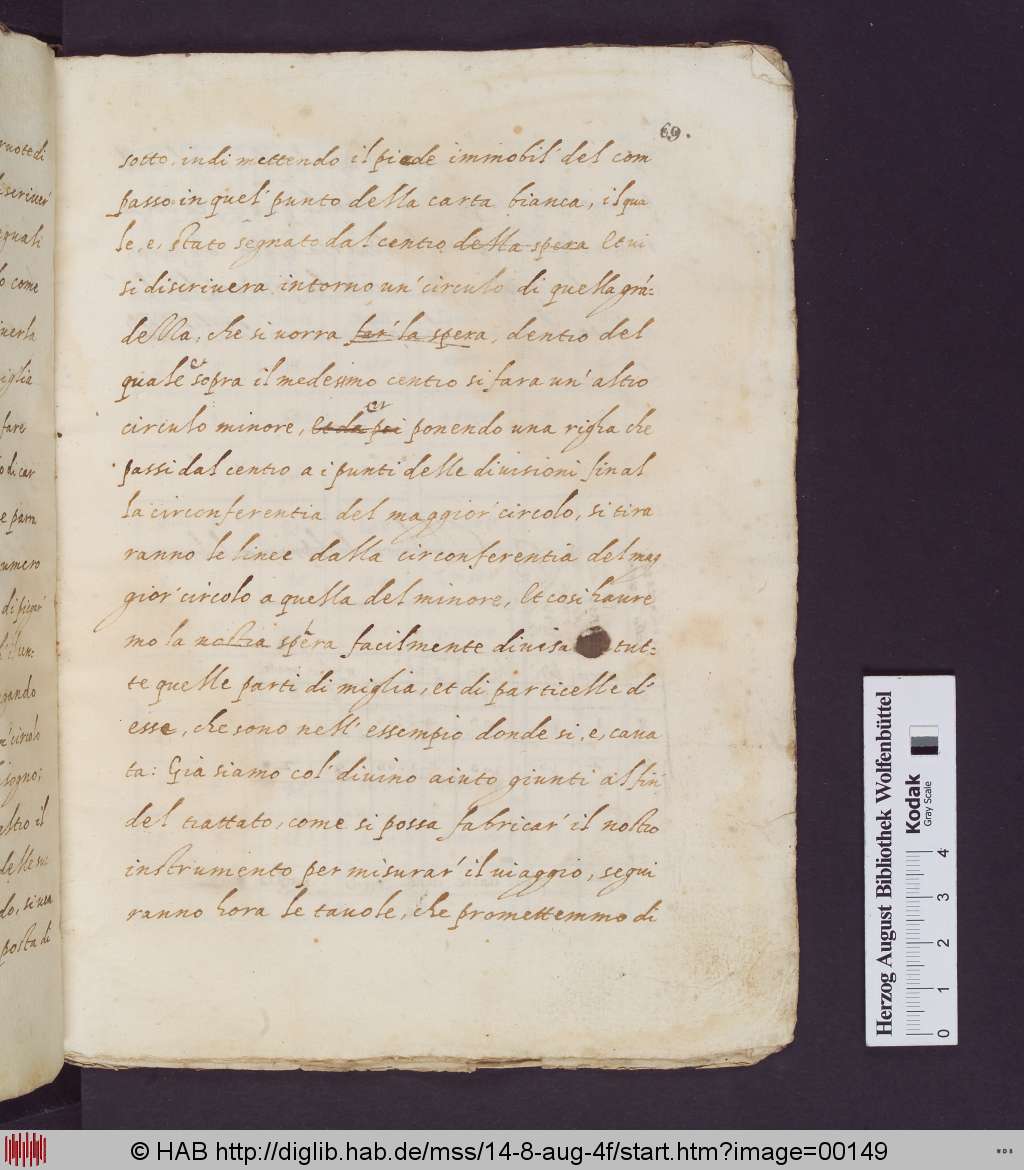 69.
sotto, indi mettendo il piede immobil' del com
passo in quel' punto della carta bianca, il qua
le, e, stato segnato dal centro della spera Et ui
si discriuera intorno un' circulo di quella grā-
dezza, che si uorra far' la spera, dentro del
quale et sopra il medesimo centro si fara un' altro
circulo minore, Et da poi et ponendo una righa che
passi dal centro a i punti delle diuisioni fin al
la circonferentia del maggior' circolo, si tira
ranno le linee dalla circonferentia del mag
gior' circolo a quella del minore, Et cosi haure
mo la nostra spera facilmente diuisa tut-
te quelle parti di miglia, et di particelle d'
esse, che sono nell' essempio donde si, e, caua
ta: Gia siamo col' diuino aiuto giunti al fin
del trattato, come si possa fabricar' il nostro
instrumento per misurar' il uiaggio, segui
ranno hora le tauole, che promettemmo di
ruote di
equali
o come
iglia
fare
o di car
e para
umero
di piegar'
rando
circolo
altro il
do, si uea
posta di
Herzog August Bibliothek Wolfenbüttel
Kodak
Gray Scale
0 1 2 3 4
© HAB http://diglib.hab.de/mss/14-8-aug-4f/start.htm?image=00149